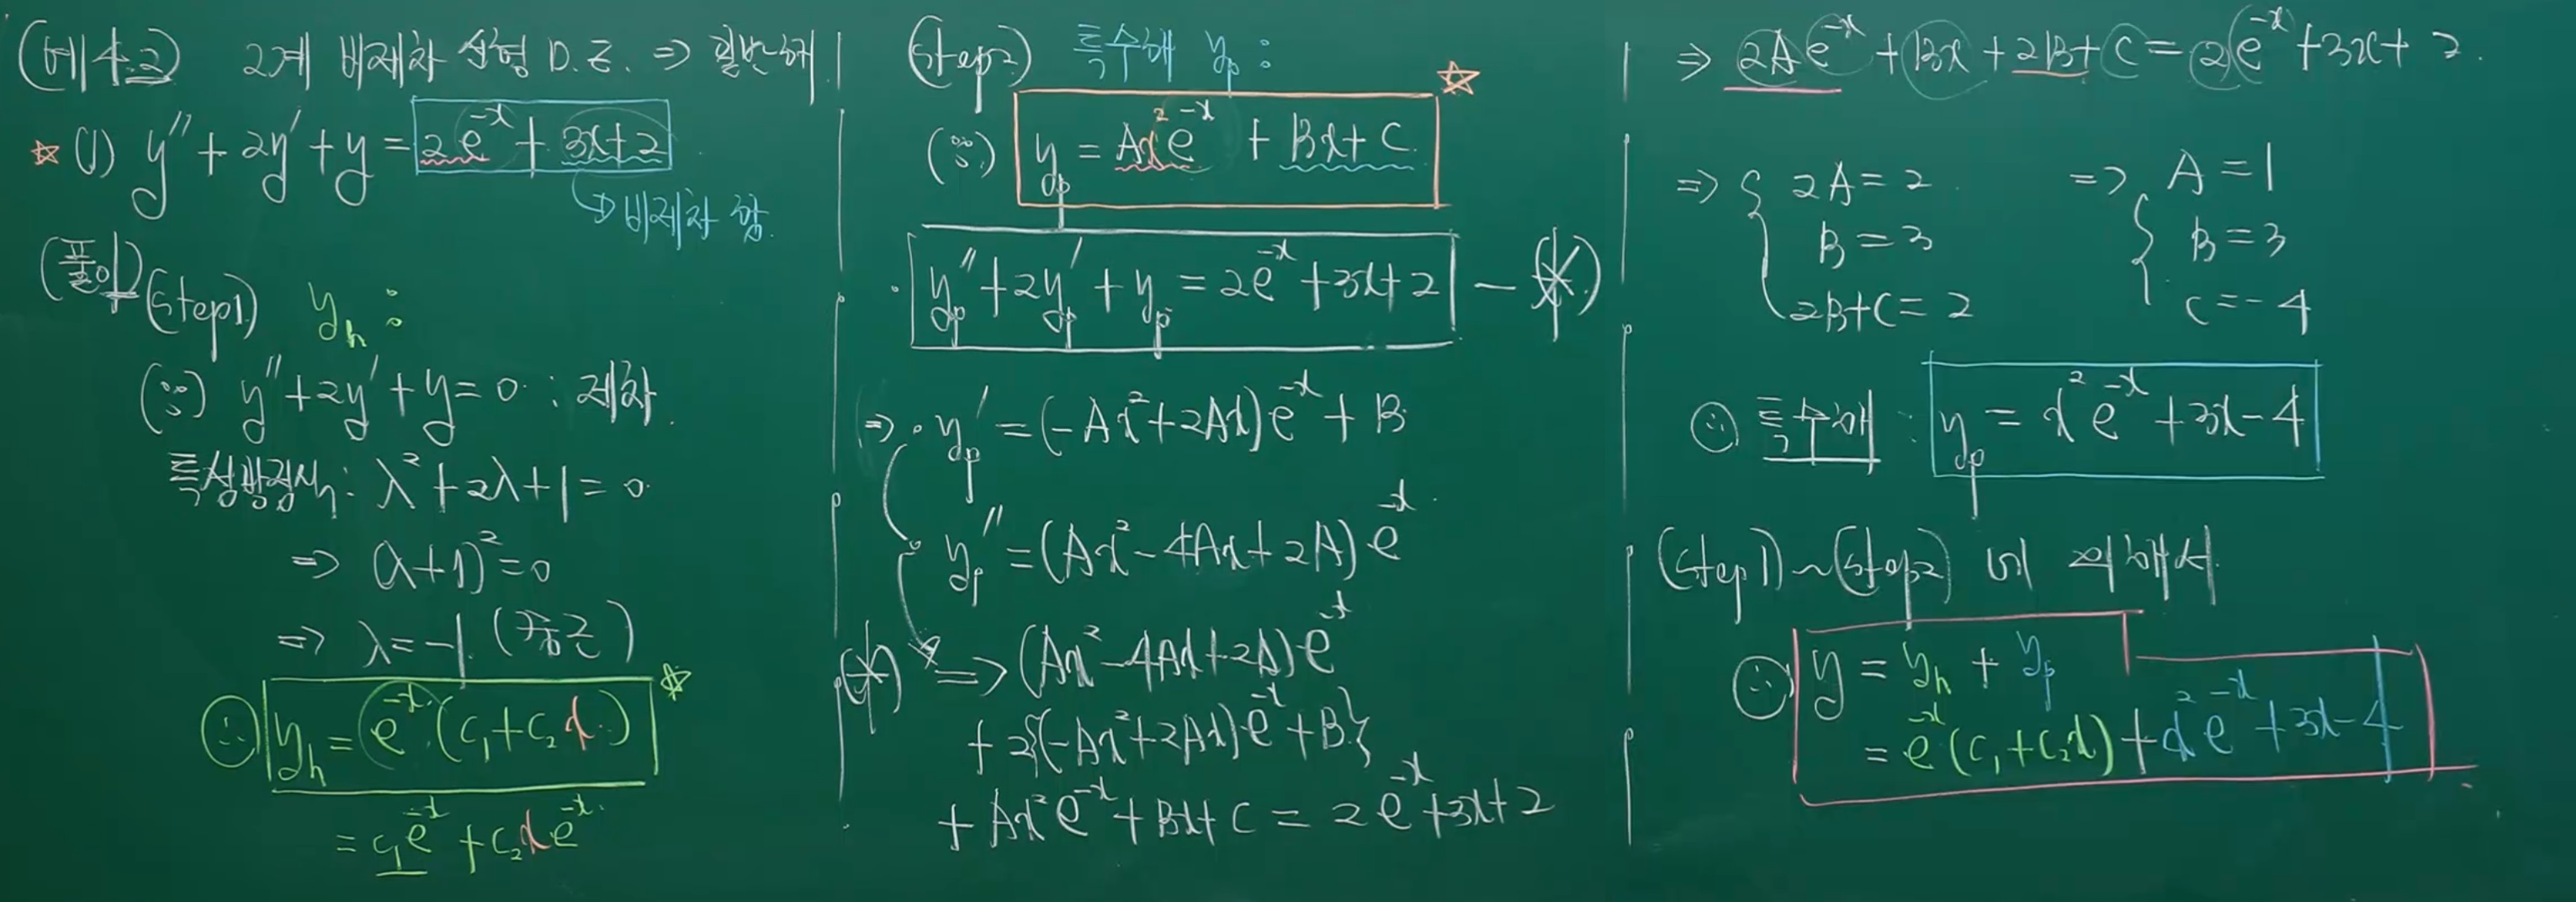 (예4.2) 2계 비제차 선형 D.E. ⇒ 일반해!
☆ (1) y'' + 2y' + y = 2e^{-x} + 3x+2
↳ 비제차 항.
(풀이) (Step1) y_h :
(∵) y'' + 2y' + y = 0 : 제차.
특성방정식: λ² + 2λ + 1 = 0.
⇒ (λ+1)² = 0
⇒ λ = -1. (중근)
∴ y_h = e^{-x}·(c₁+c₂x.) ☆
= c₁e^{-x} + c₂xe^{-x}.
(Step2) 특수해 y_p :
(∵) y_p = Ax²e^{-x} + Bx + C. ☆
· y_p'' + 2y_p' + y_p = 2e^{-x} + 3x + 2 — (*)
⇒ · y_p' = (-Ax²+2Ax)e^{-x} + B
· y_p'' = (Ax² - 4Ax + 2A)e^{-x}.
(*) ⇒ (Ax² - 4Ax + 2A)e^{-x}
+ 2{(-Ax²+2Ax)e^{-x} + B}
+ Ax²e^{-x} + Bx + C = 2e^{-x} + 3x + 2
⇒ 2Ae^{-x} + Bx + 2B + C = 2e^{-x} + 3x + 2.
⇒ { 2A = 2 ⇒ { A = 1
B = 3 B = 3
2B+C = 2 C = -4
∴ 특수해 : y_p = x²e^{-x} + 3x - 4
(Step1)~(Step2)에 의해서
∴ y = y_h + y_p
= e^{-x}(c₁+c₂x) + x²e^{-x} + 3x - 4